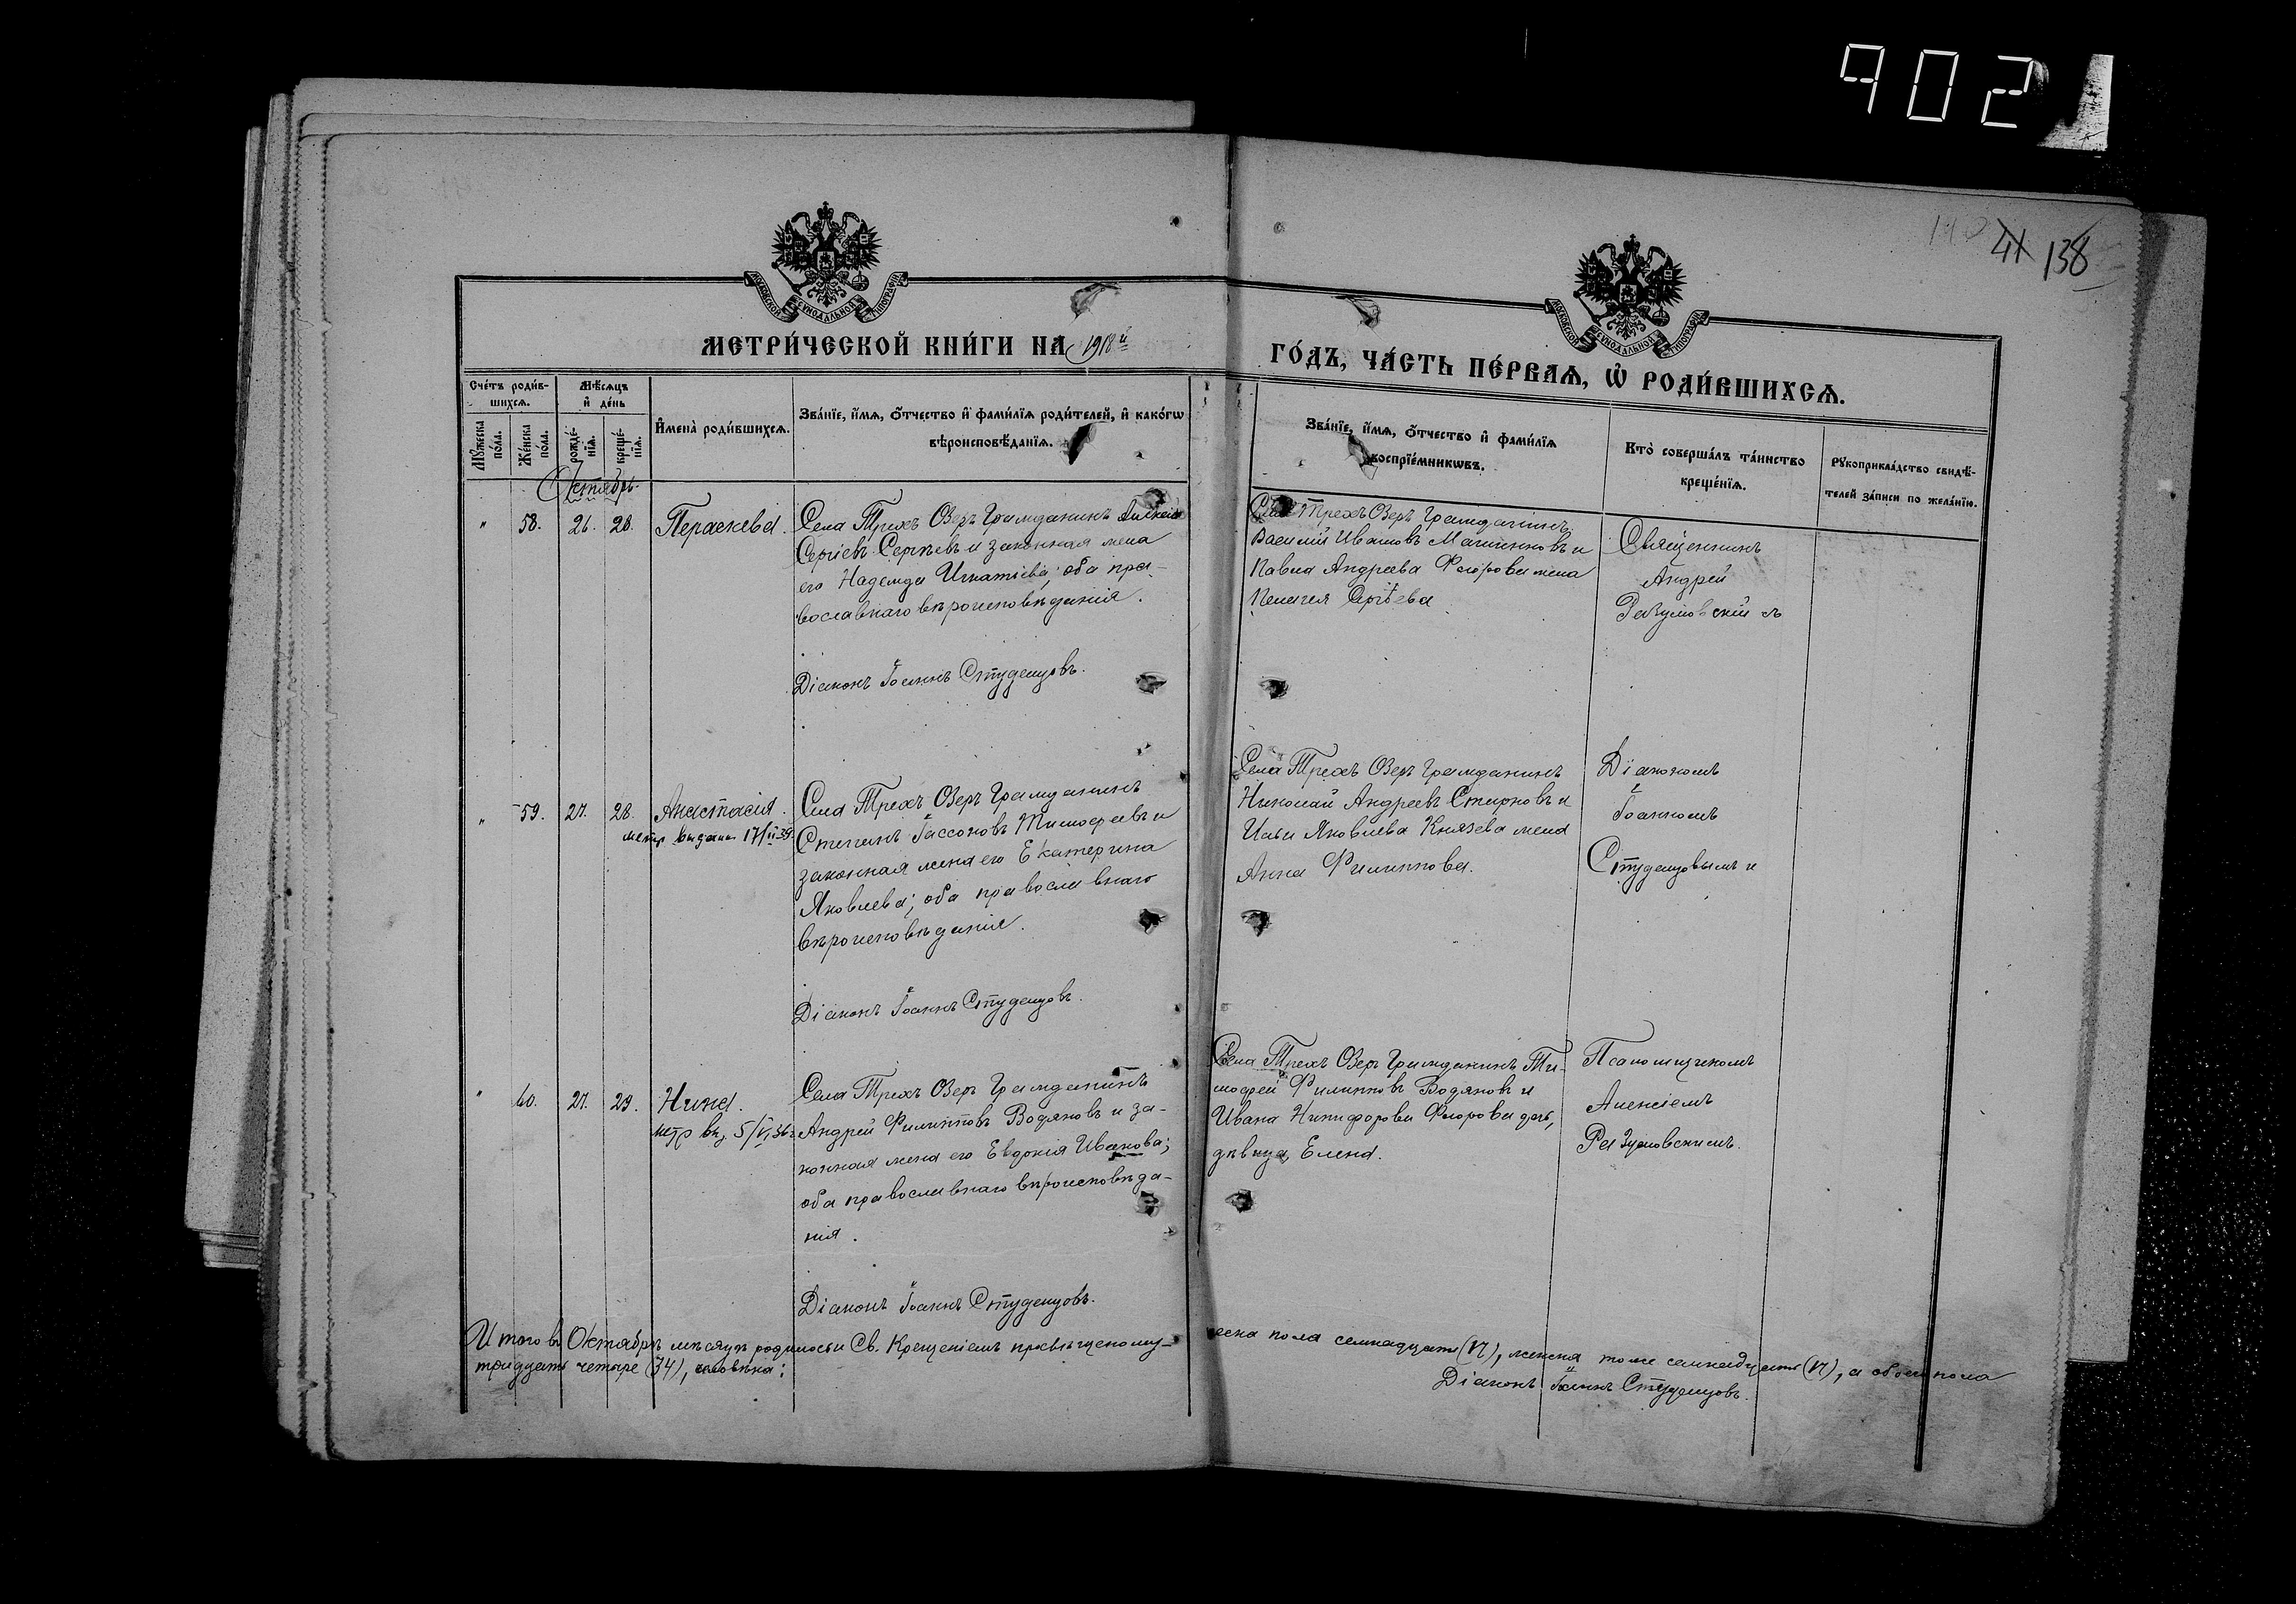 902
41 138
МОСКОВСКОЙ СУНОДАЛЬНОЙ ТИПОГРАФІИ
МОСКОВСКОЙ СУНОДАЛЬНОЙ ТИПОГРАФІИ
МЕТРИ́ЧЕСКОЙ КНИ́ГИ НА 1918й
ГО́ДЪ, ЧА́СТЬ ПЕ́РВАѦ, Ѡ҆ РОДИ́ВШИХСѦ.
Сче́тъ роди́в-
шихсѧ.
Мѣ́сѧцъ
и҆ де́нь
Мꙋ́жеска
по́ла.
Же́нска
по́ла.
рожде́-
нїѧ.
креще́-
нїѧ.
И҆мена̀ роди́вшихсѧ.
Зва́нїе, и҆́мѧ, ѻ҆́тчество и҆ фами́лїѧ роди́телей, и҆ како́гѡ
вѣроисповѣ́данїѧ.
Зва́нїе, и҆́мѧ, ѻ҆́тчество и҆ фами́лїѧ
воспрїе́мникѡвъ.
Кто̀ соверша́лъ та́инство
креще́нїѧ.
Рꙋкоприкла́дство свидѣ́-
телей за́писи по жела́нїю.
Октябрь.
" 58. 26. 28. Параскева.
Села Трехъ Озеръ Гражданинъ Алексѣй
Сергіевъ Сергѣевъ и законная жена
его Надежда Игнатіева; оба пра-
вославнаго вѣроисповѣданія.
Діаконъ Іоаннъ Студенцовъ.
Села Трехъ Озеръ Гражданинъ
Василій Ивановъ Машинновъ и
Павла Андреева Фролова жена
Пелагея Сергѣева
Священникъ
Андрей
Разумовскій съ
" 59. 27. 28. Анастасія.
метр выдана 17/II 39
Села Трехъ Озеръ Гражданинъ
Степанъ Іассоновъ Тимофеевъ и
законная жена его Екатерина
Яковлева; оба православнаго
вѣроисповѣданія.
Діаконъ Іоаннъ Студенцовъ.
Села Трехъ Озеръ Гражданинъ
Николай Андреевъ Смирновъ и
Ильи Яковлева Князева жена
Анна Филиппова.
Діакономъ
Іоанномъ
Студенцовымъ и
" 60. 27. 29. Нина.
метр вы, 5/VI 36
Села Трехъ Озеръ Гражданинъ
Андрей Филипповъ Водяновъ и за-
конная жена его Евдокія Иванова;
оба православнаго вѣроисповѣда-
нія.
Діаконъ Іоаннъ Студенцовъ.
Села Трехъ Озеръ Гражданинъ Ти-
мофей Филипповъ Водяновъ и
Ивана Никифорова Фролова дочь,
дѣвица, Елена.
Псаломщикомъ
Алексіемъ
Разумовскимъ.
Итого въ Октябрѣ мѣсяцѣ родилось и Св. Крещеніемъ просвѣщено муж-
еска пола семнадцать (17), женска тоже семнадцать (17), а обоего пола
тридцать четыре (34), человѣка:
Діаконъ Іоаннъ Студенцовъ.